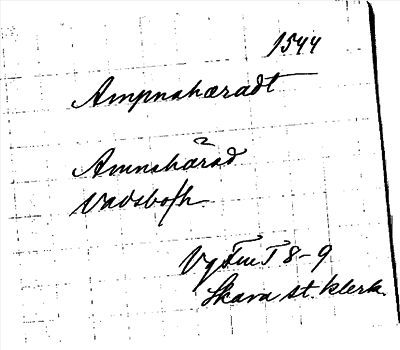 1544
Ampnahæradt
Amnehärad
Vadsbo h
Vg Fm T 8-9
Skara st. klerk.